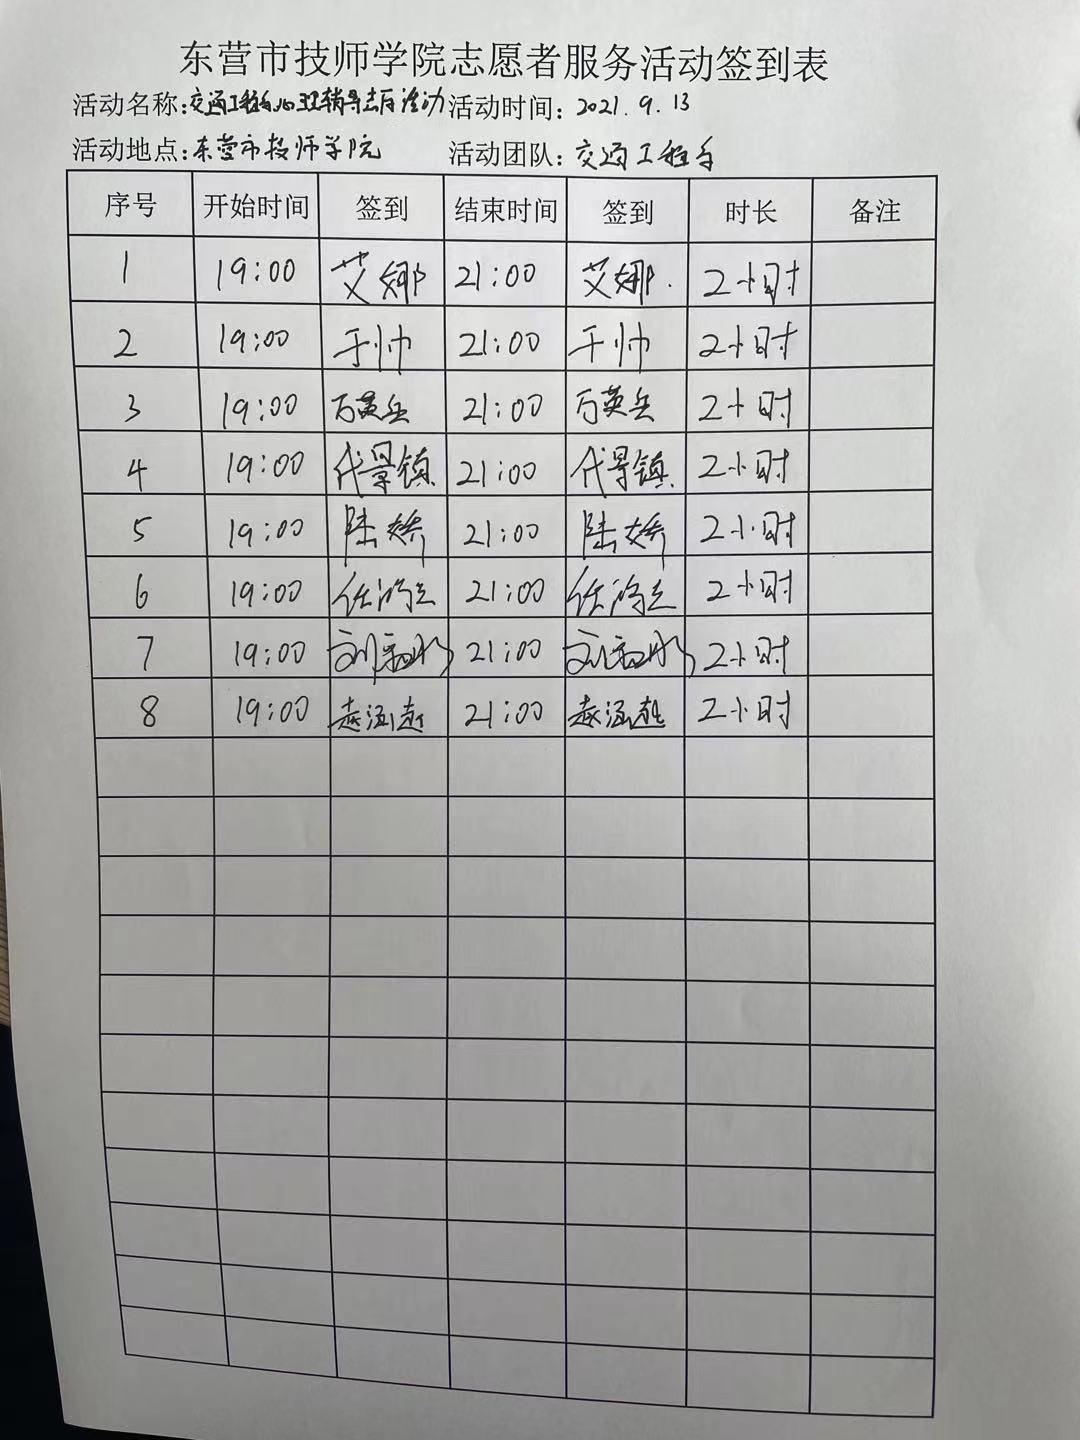 东营市技师学院志愿者服务活动签到表
活动名称:交通工程系心理辅导志愿活动 活动时间: 2021.9.13
活动地点:东营市技师学院 活动团队: 交通工程系
序号 开始时间 签到 结束时间 签到 时长 备注
1 19:00 艾娜 21:00 艾娜 2小时
2 19:00 于帅 21:00 于帅 2小时
3 19:00 万英兵 21:00 万英兵 2小时
4 19:00 代景镇 21:00 代景镇 2小时
5 19:00 陆娇 21:00 陆娇 2小时
6 19:00 任鸿立 21:00 任鸿立 2小时
7 19:00 21:00 2小时
8 19:00 21:00 2小时